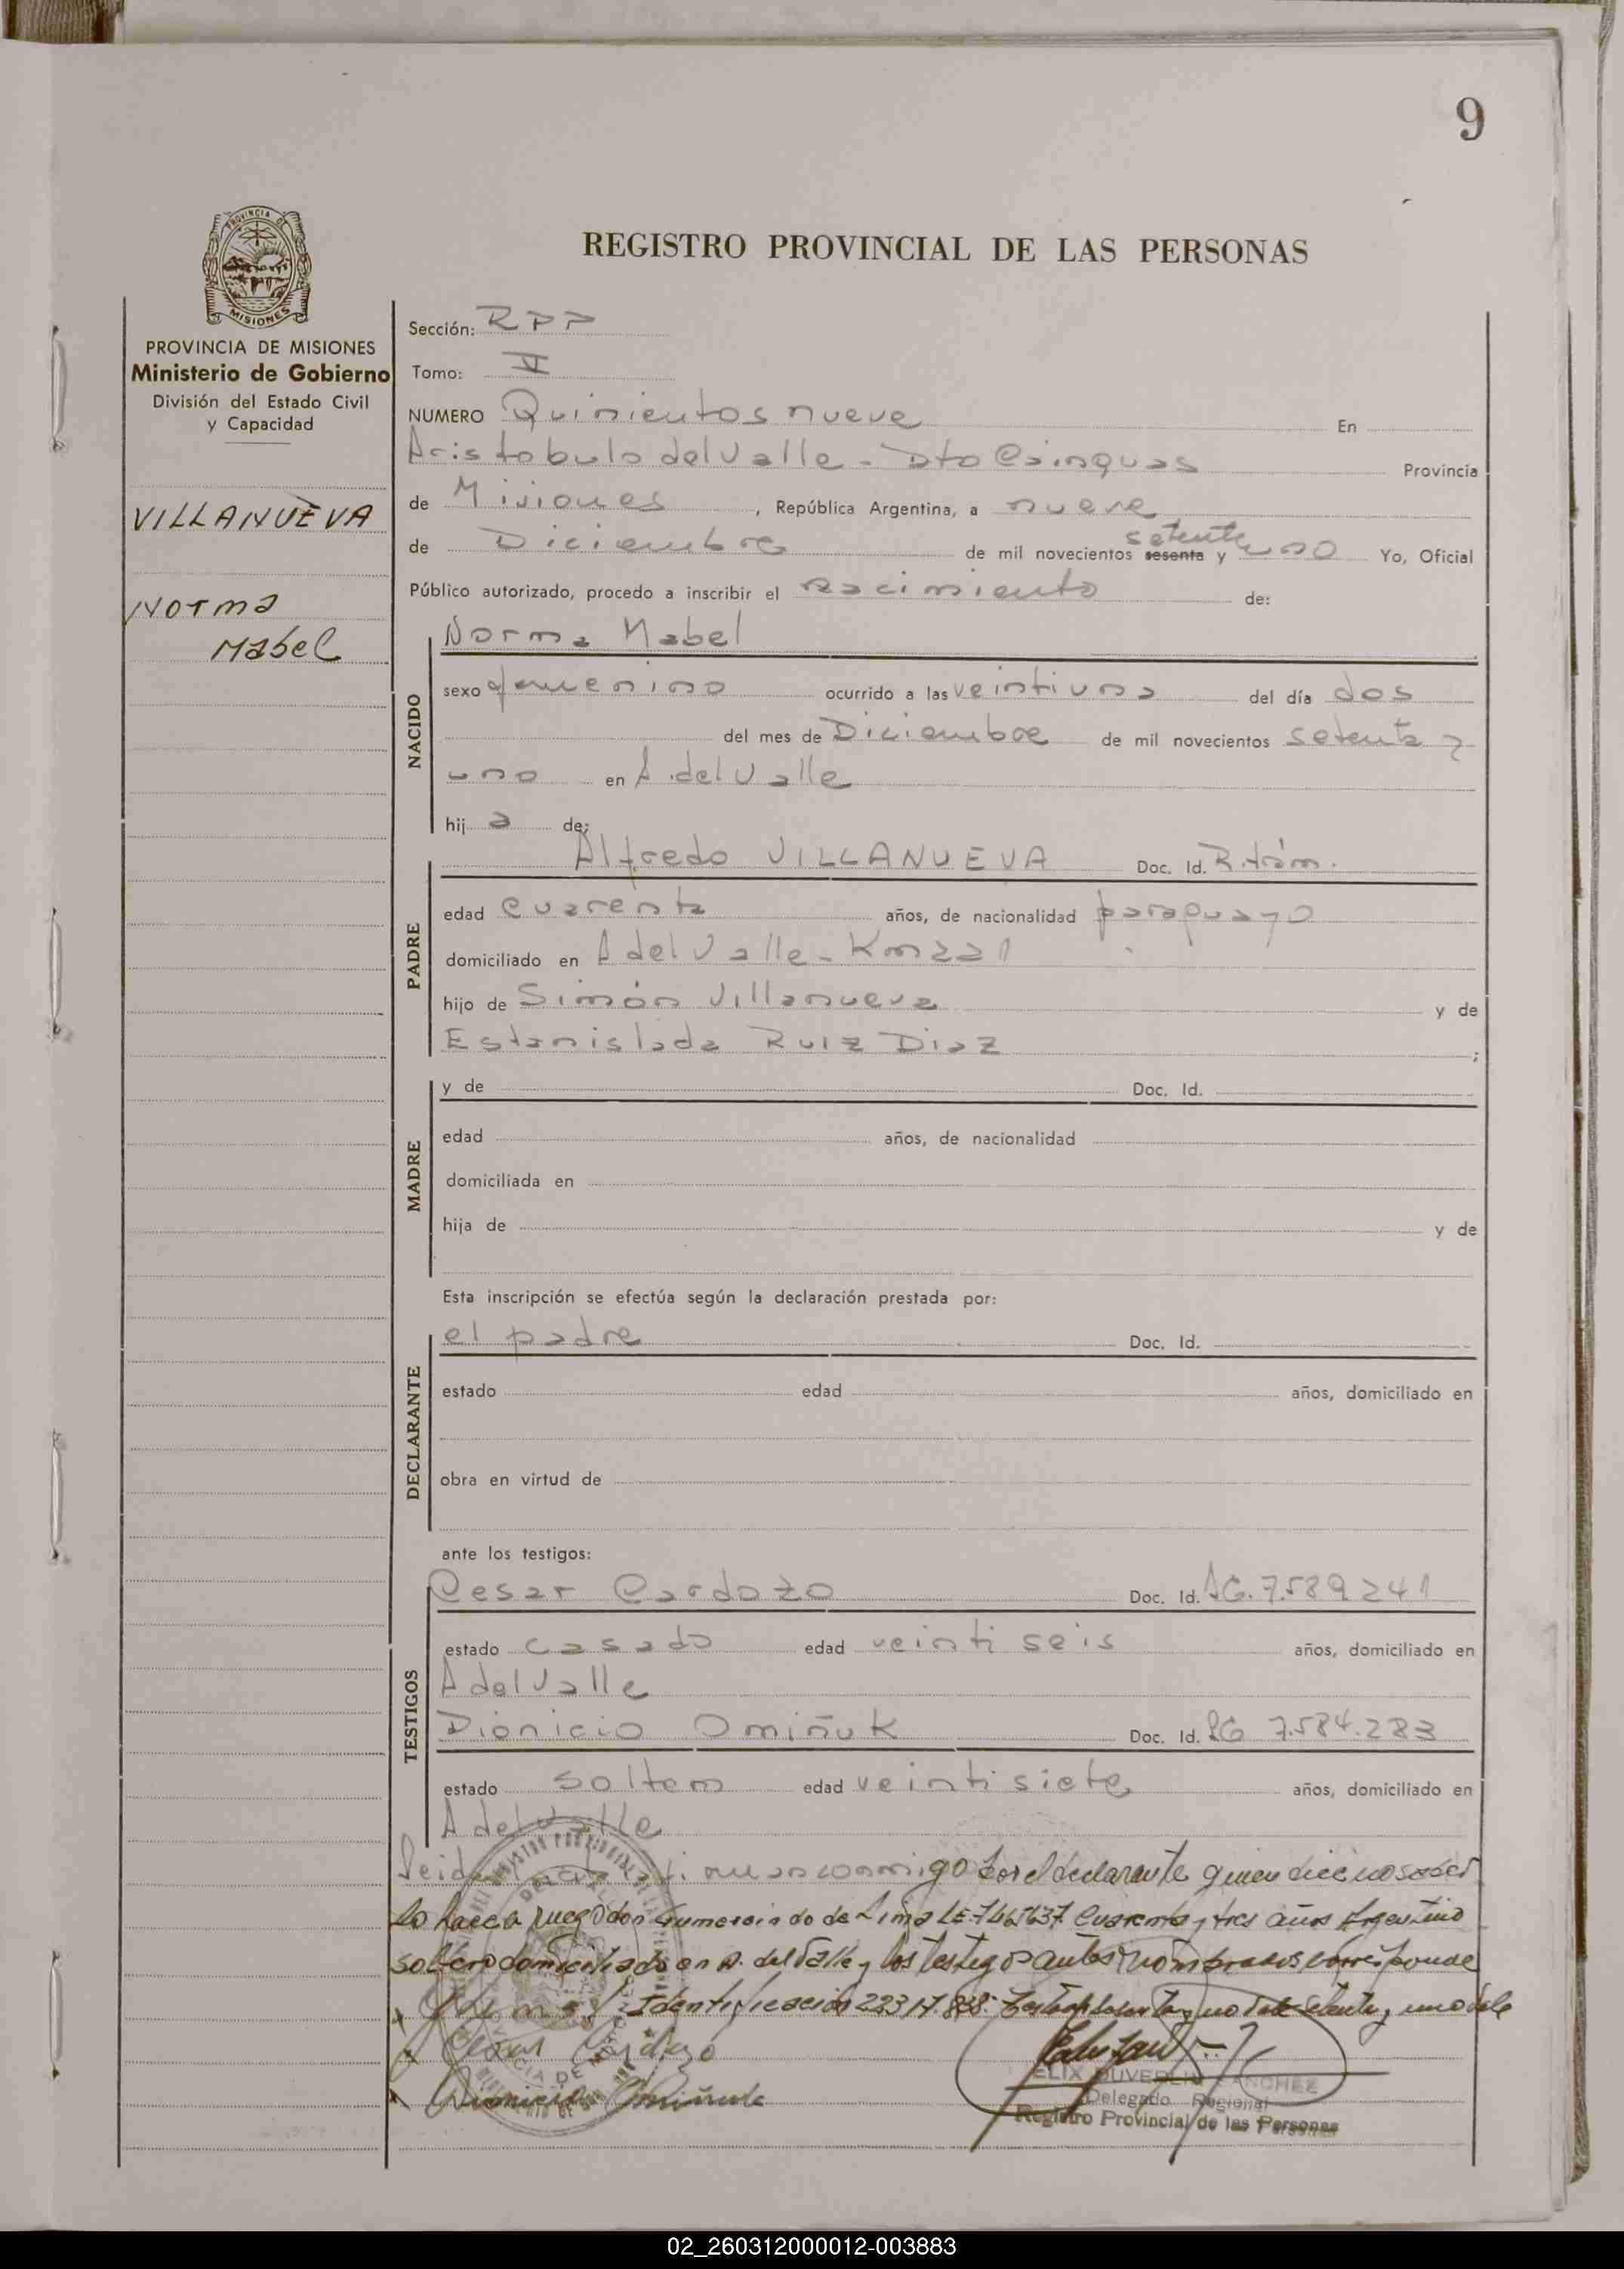 9
PROVINCIA DE
MISIONES
REGISTRO PROVINCIAL DE LAS PERSONAS
PROVINCIA DE MISIONES
Ministerio de Gobierno
División del Estado Civil
y Capacidad
VILLANUEVA
Norma
Mabel
Sección: RPP
Tomo: V
NUMERO Quinientos nueve En
Aristobulo del Valle - Dto Cainguas Provincia
de Misiones, República Argentina, a nueve
de Diciembre de mil novecientos sesenta y setenta uno Yo, Oficial
Público autorizado, procedo a inscribir el nacimiento de:
NACIDO
Norma Mabel
sexo femenino ocurrido a las veintiuna del día dos
del mes de Diciembre de mil novecientos setenta y
uno en A. del Valle
hij a de:
PADRE
Alfredo VILLANUEVA Doc. Id. R. trám.
edad cuarenta años, de nacionalidad paraguayo
domiciliado en A del Valle - Km 221
hijo de Simón Villanueva y de
Estanislada Ruiz Diaz ;
MADRE
y de Doc. Id.
edad años, de nacionalidad
domiciliada en
hija de y de
Esta inscripción se efectúa según la declaración prestada por:
DECLARANTE
el padre Doc. Id.
estado edad años, domiciliado en
obra en virtud de
ante los testigos:
TESTIGOS
Cesar Cardozo Doc. Id. 7.589241
estado casado edad veinti seis años, domiciliado en
A del Valle
Dionicio Omiñuk Doc. Id. 7.584.283
estado soltero edad veintisiete años, domiciliado en
A del Valle
conmigo por el declarante quien dice no saber
lo hace a ruego don de Lima LE. cuarenta y tres años Argentino
soltero domiciliado en A. del Valle y los testigos antes nombrados corresponde
Identificación setenta y uno vale
Cesar Cardozo
Dionicio Omiñuk
FELIX DUVERLIN SANCHEZ
Delegado Regional
Registro Provincial de las Personas
02_260312000012-003883